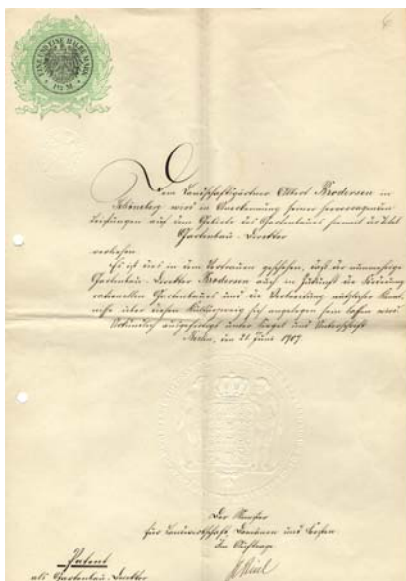 EINE UND EINE HALBE MARK
1½ M.
6
Dem Landschaftsgärtner Albert Brodersen in
Schöneberg wird in Anerkennung seiner hervorragenden
Leistungen auf dem Gebiete des Gartenbaues hiermit der Titel
Gartenbau-Direktor
verliehen.
Es ist dies in dem Vertrauen geschehen, daß der nunmehrige
Gartenbau-Direktor Brodersen auch in Zukunft die Förderung
rationellen Gartenbaues und die Verbreitung nützlicher Kennt-
nisse über diesen Kulturzweig sich angelegen sein lassen wird.
Urkundlich ausgefertigt unter Siegel und Unterschrift
Berlin, den 21. Juni 1907.
Der Minister
für Landwirtschaft, Domänen und Forsten.
Im Auftrage
Patent
als Gartenbau-Direktor